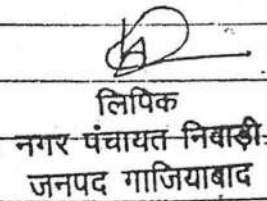 लिपिक
नगर पंचायत निवाड़ी
जनपद गाजियाबाद